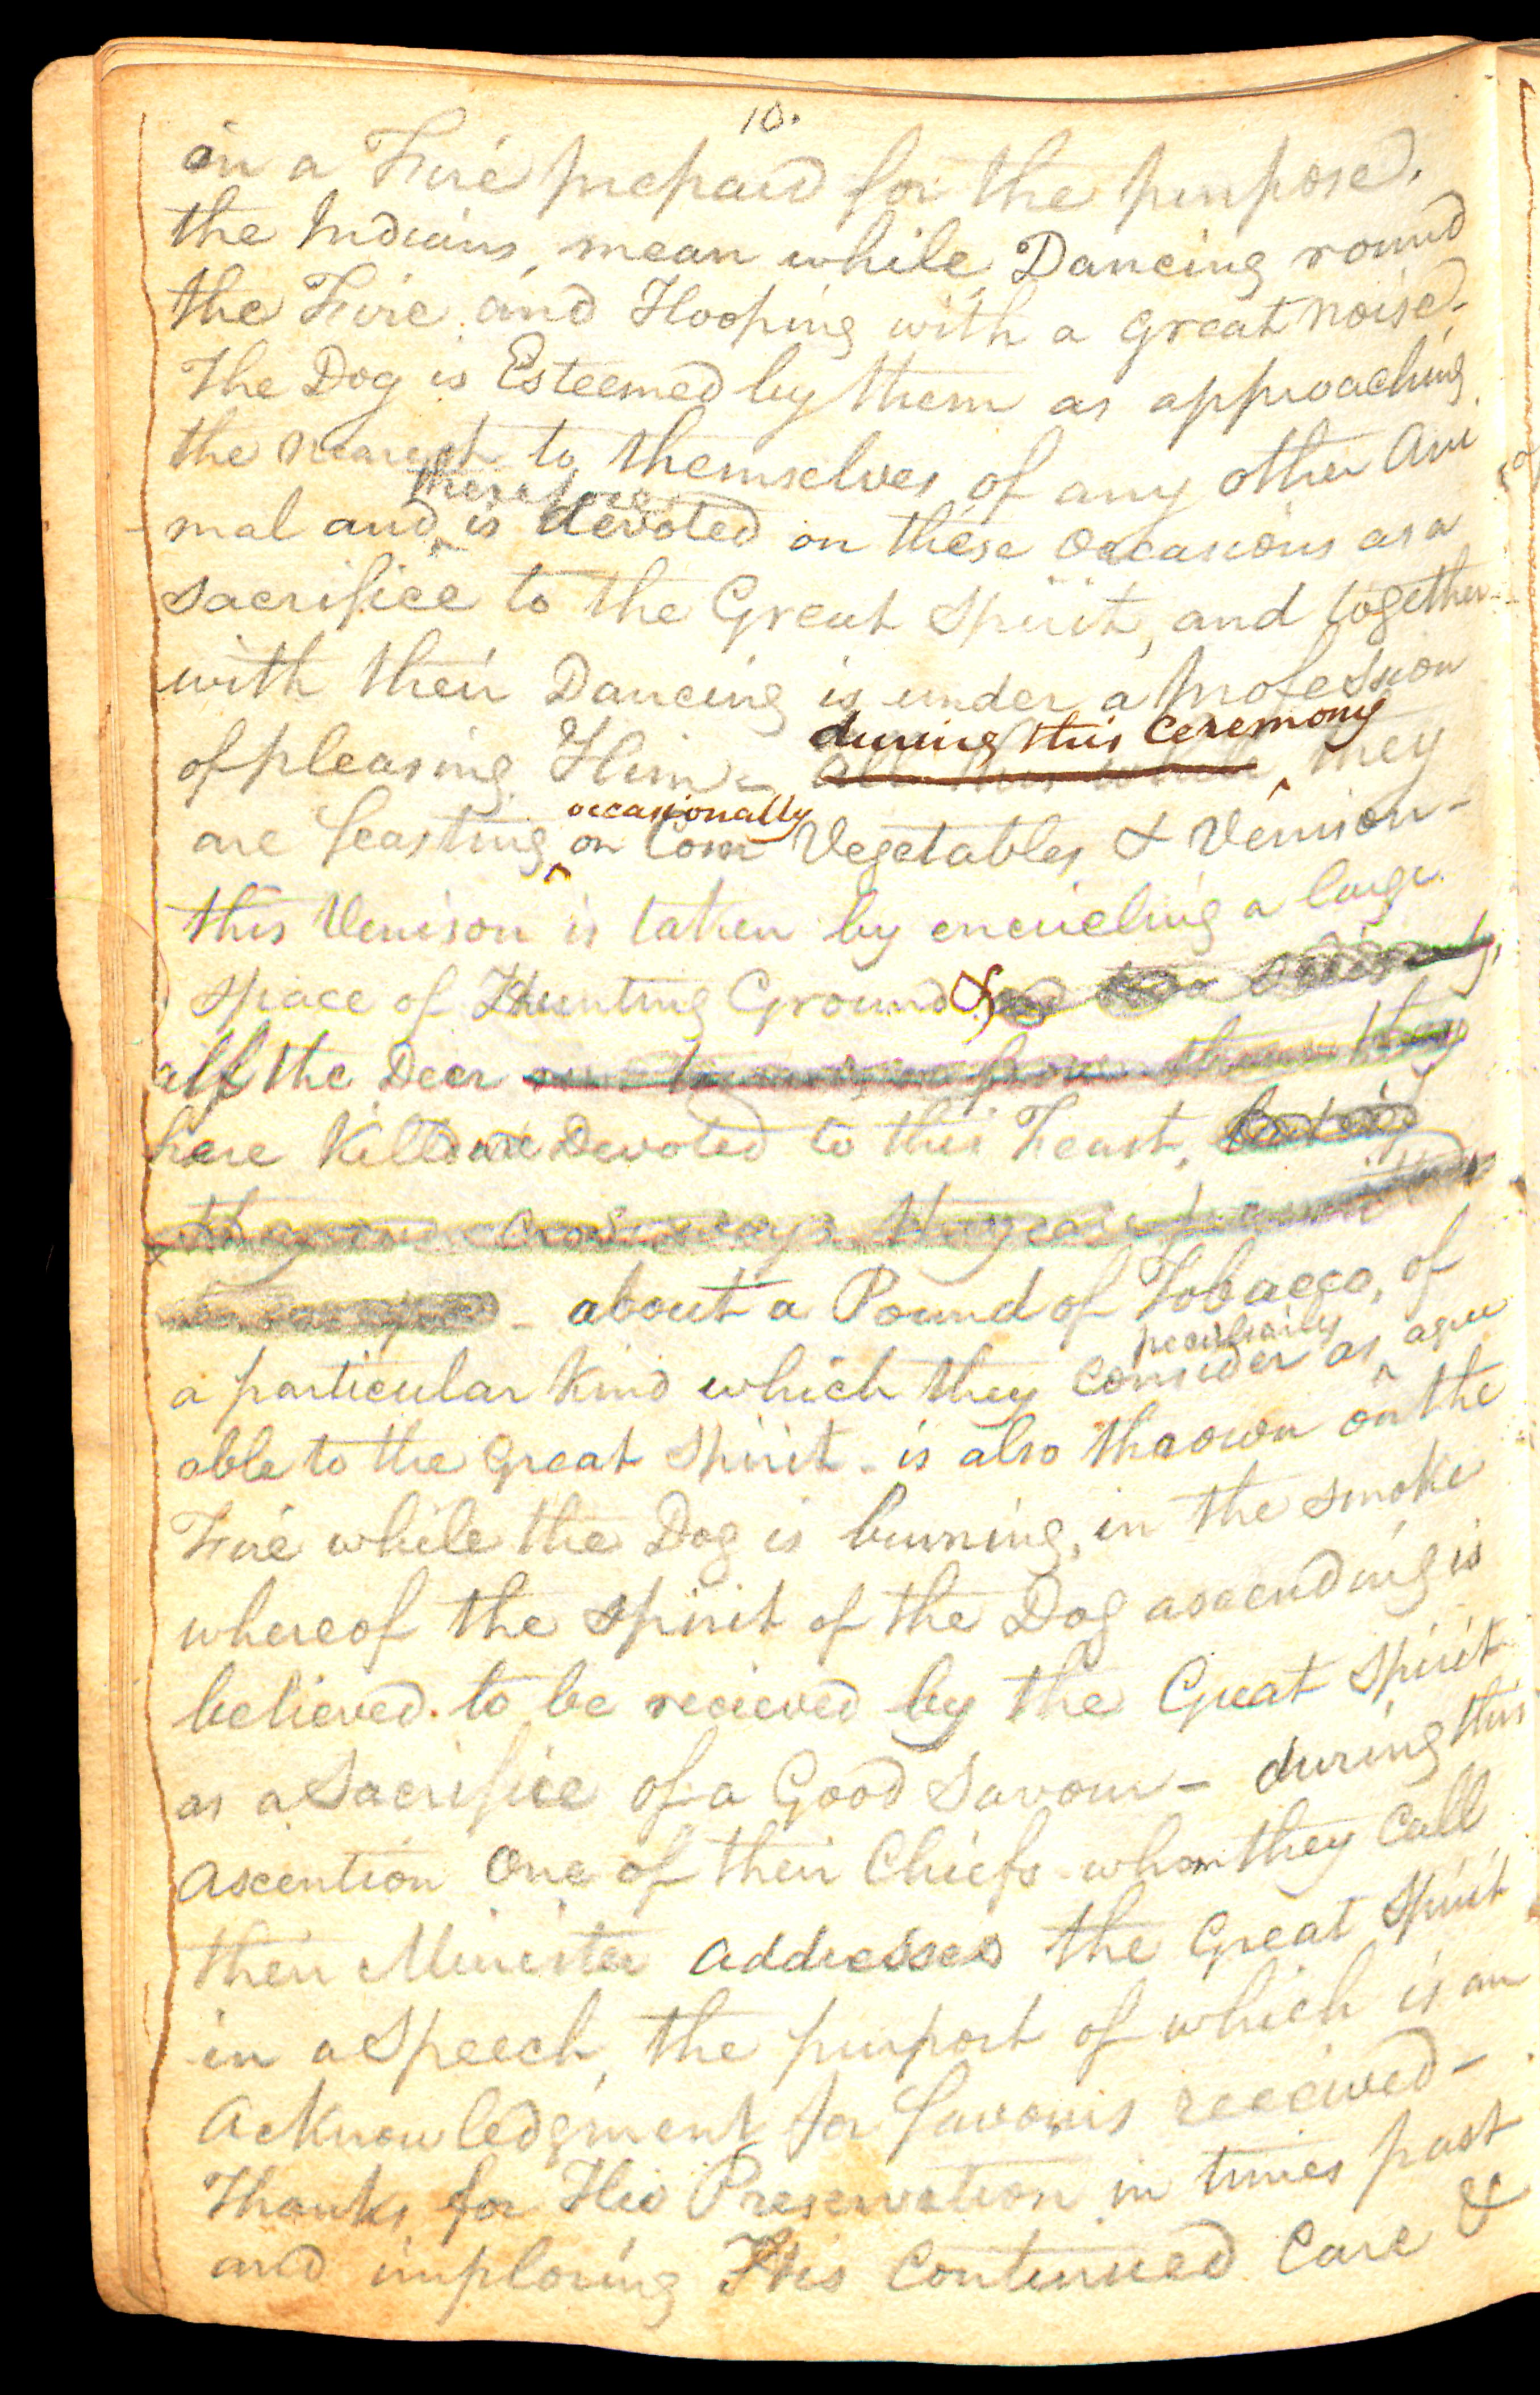 10.
in a Fire prepard for the purpose.
the Indians, mean while Dancing round
the Fire and Hooping with a great noise.
The Dog is Esteemed by them as approaching
the nearest to themselves of any other Ani
therefore
mal and is devoted on these occasions as a
sacrifice to the Great Spirit, and together
with their Dancing is under a profession
during this Ceremony
of pleasing Him - all this while they
occasionally
are feasting on Corn Vegetables & Venison -
this Venison is taken by encircling a large
space of Hunting Ground &
all the Deer
here Killd are Devoted to this Feast.
about a Pound of Tobacco, of
peculiarily
a particular Kind which they consider as agree
able to the great Spirit - is also thrown on the
Fire while the Dog is burning, in the smoke
whereof the spirit of the Dog ascending is
believed to be recieved by the Great Spirit
as a Sacrifice of a Good Savour - during this
ascention One of their Chiefs whom they Call
their Minister addresses the Great Spirit
in a Speech, the purport of which is an
Acknowledgment for favours received -
Thanks for His Preservation in times past
and imploring His Continued Care &